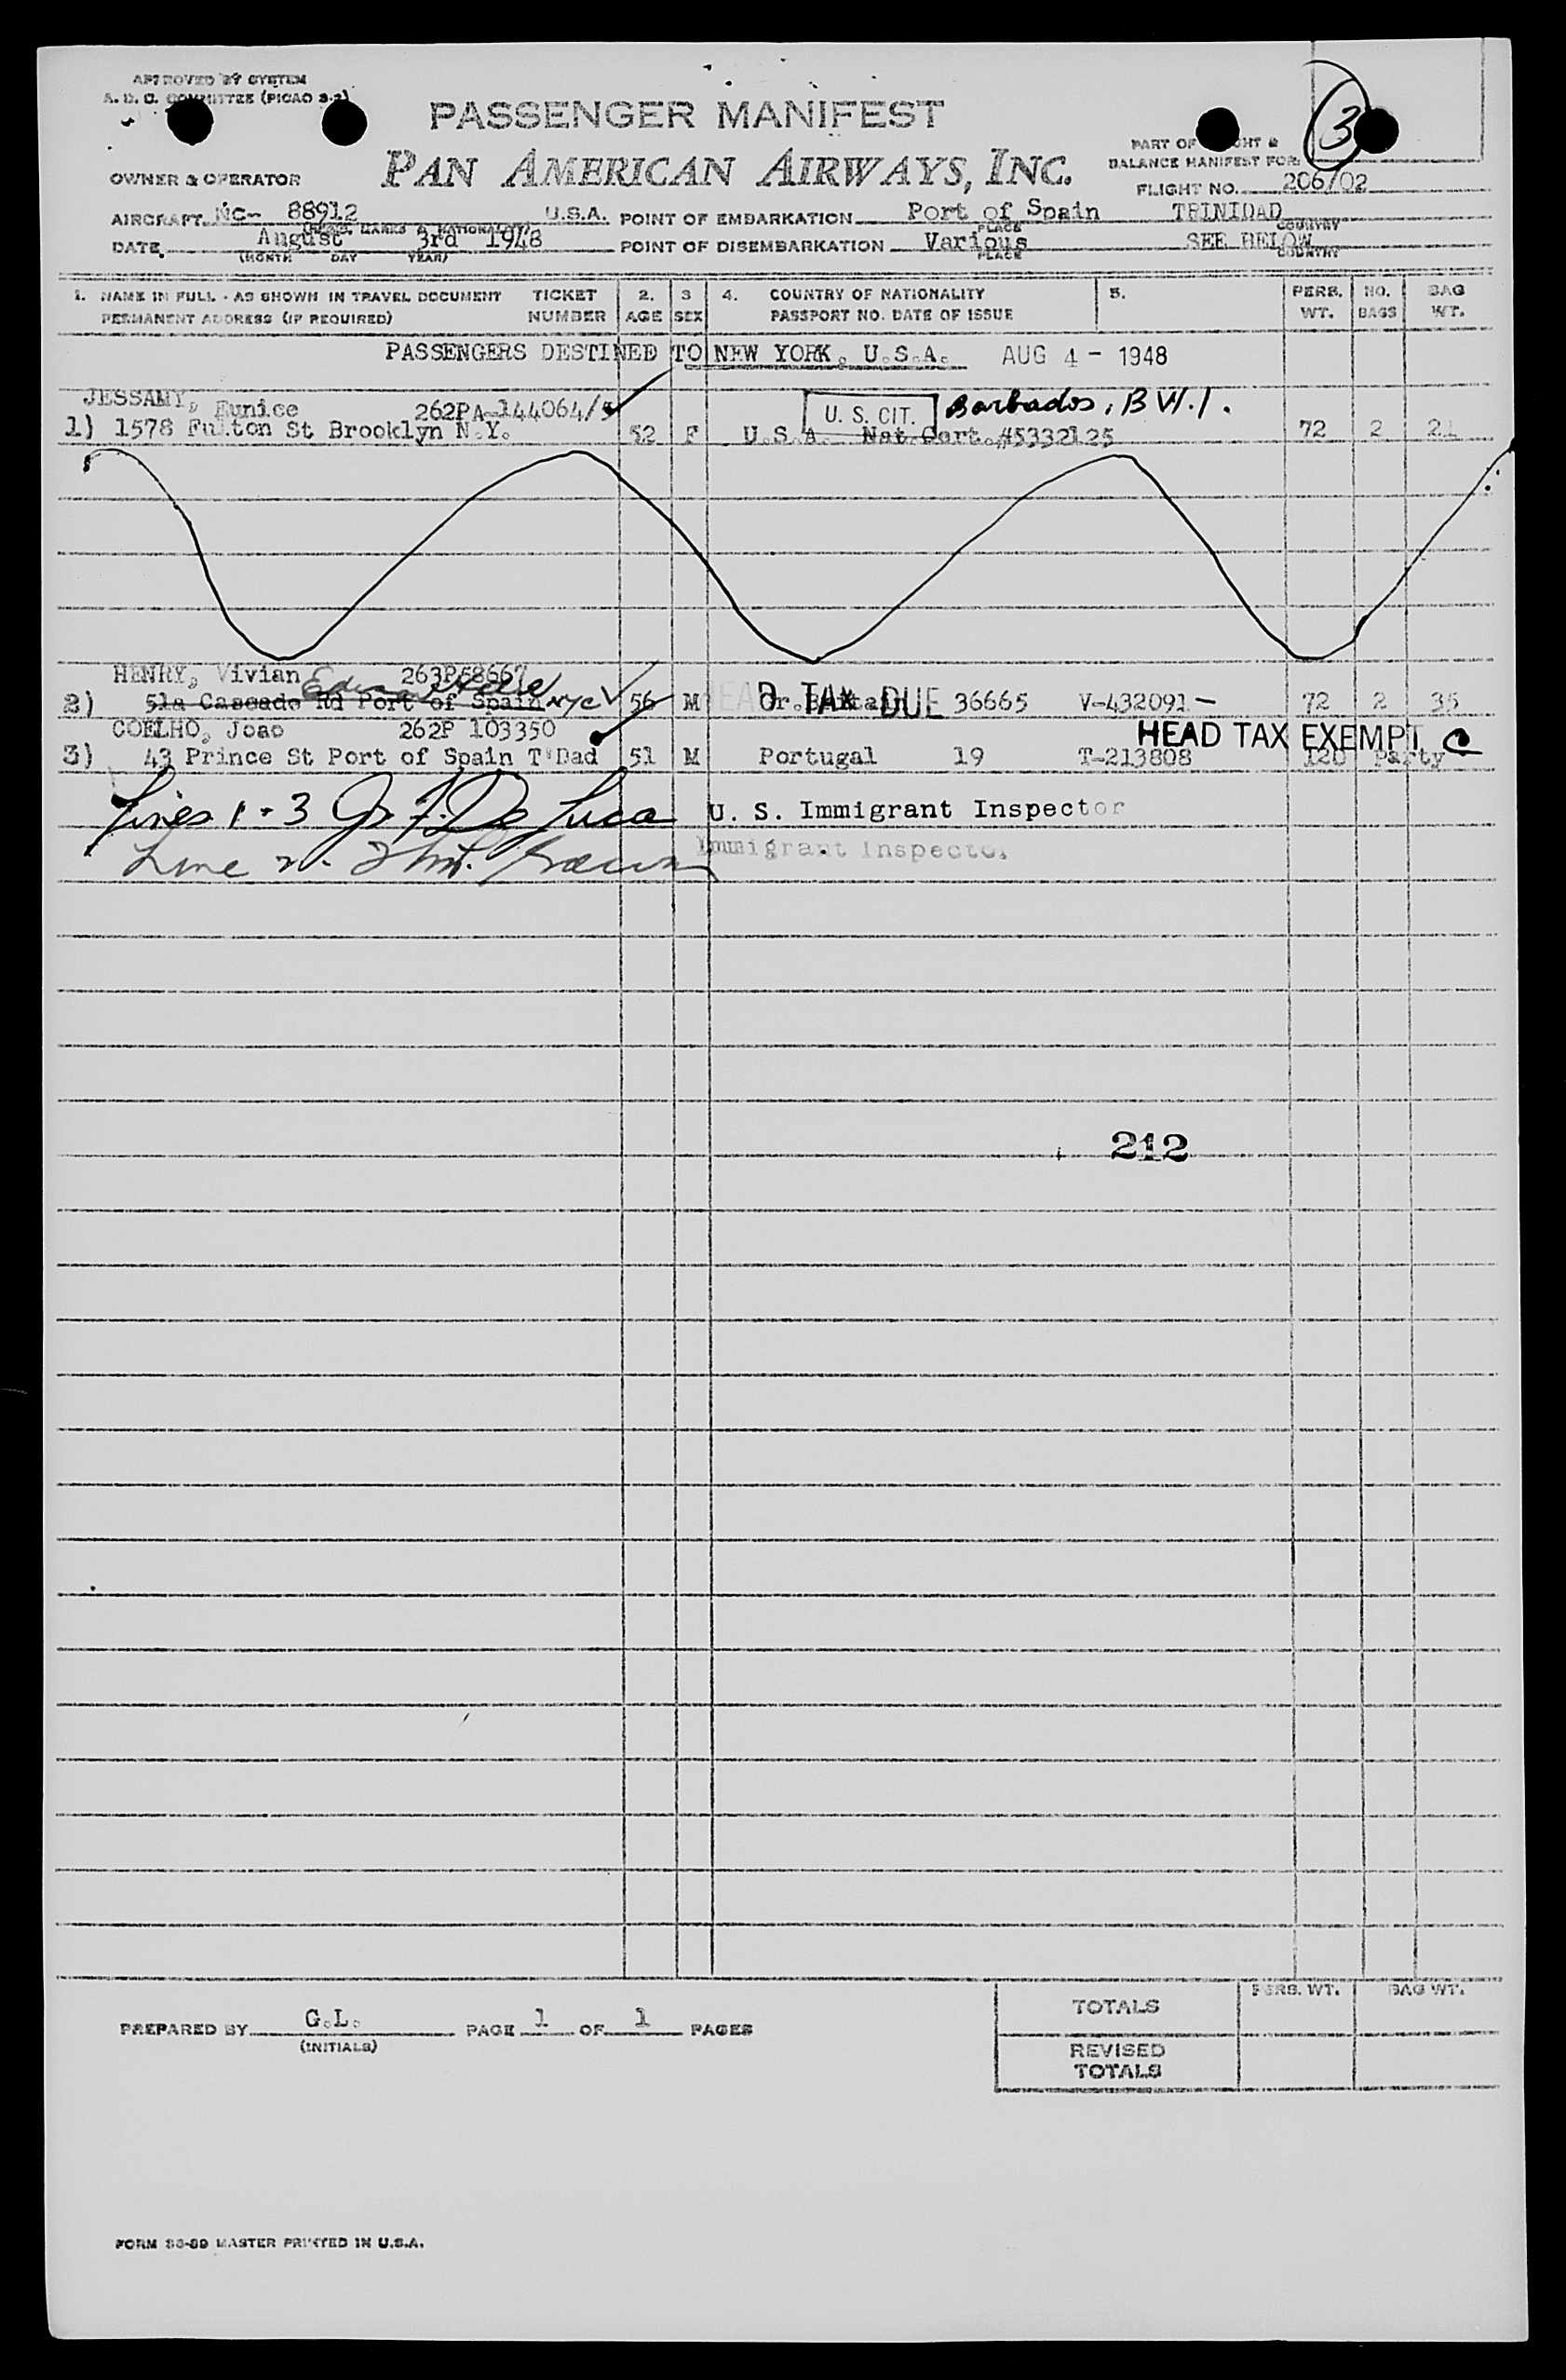 APPROVED BY SYSTEM
A. D. C. COMMITTEE (PICAO 2-2)
PASSENGER MANIFEST
3
PART OF
BALANCE MANIFEST FOR:
PAN AMERICAN AIRWAYS, INC.
OWNER & OPERATOR
FLIGHT NO. 206/02
AIRCRAFT NC- 88912 U.S.A. POINT OF EMBARKATION Port of Spain TRINIDAD
PLACE COUNTRY
DATE August 3rd 1948 POINT OF DISEMBARKATION Various SEE BELOW
(MONTH DAY YEAR) PLACE COUNTRY
1. NAME IN FULL - AS SHOWN IN TRAVEL DOCUMENT TICKET 2. 3 4. COUNTRY OF NATIONALITY 5. PERS. NO. BAG
PERMANENT ADDRESS (IF REQUIRED) NUMBER AGE SEX PASSPORT NO. DATE OF ISSUE WT. BAGS WT.
PASSENGERS DESTINED TO NEW YORK, U.S.A. AUG 4 - 1948
JESSAMY, Eunice 262PA-144064/5 U. S. CIT. Barbados, B.W.I.
1) 1578 Fulton St Brooklyn N.Y. 52 F U.S.A. Nat.Cert.#5332125 72 2 21
HENRY, Vivian 263P58667
2) 51a Cascade Rd Port of Spain NYC 56 M Gr.Britain HEAD TAX DUE 36665 V-432091 - 72 2 35
COELHO, Joao 262P 103350 HEAD TAX EXEMPT
3) 43 Prince St Port of Spain T'Dad 51 M Portugal 19 T-213808 120 Party
Lines 1-3 De Luca U. S. Immigrant Inspector
Line 2. Immigrant Inspector
212
PREPARED BY G.L. PAGE 1 OF 1 PAGES
(INITIALS)
PERS. WT. BAG WT.
TOTALS
REVISED
TOTALS
FORM 86-89 MASTER PRINTED IN U.S.A.